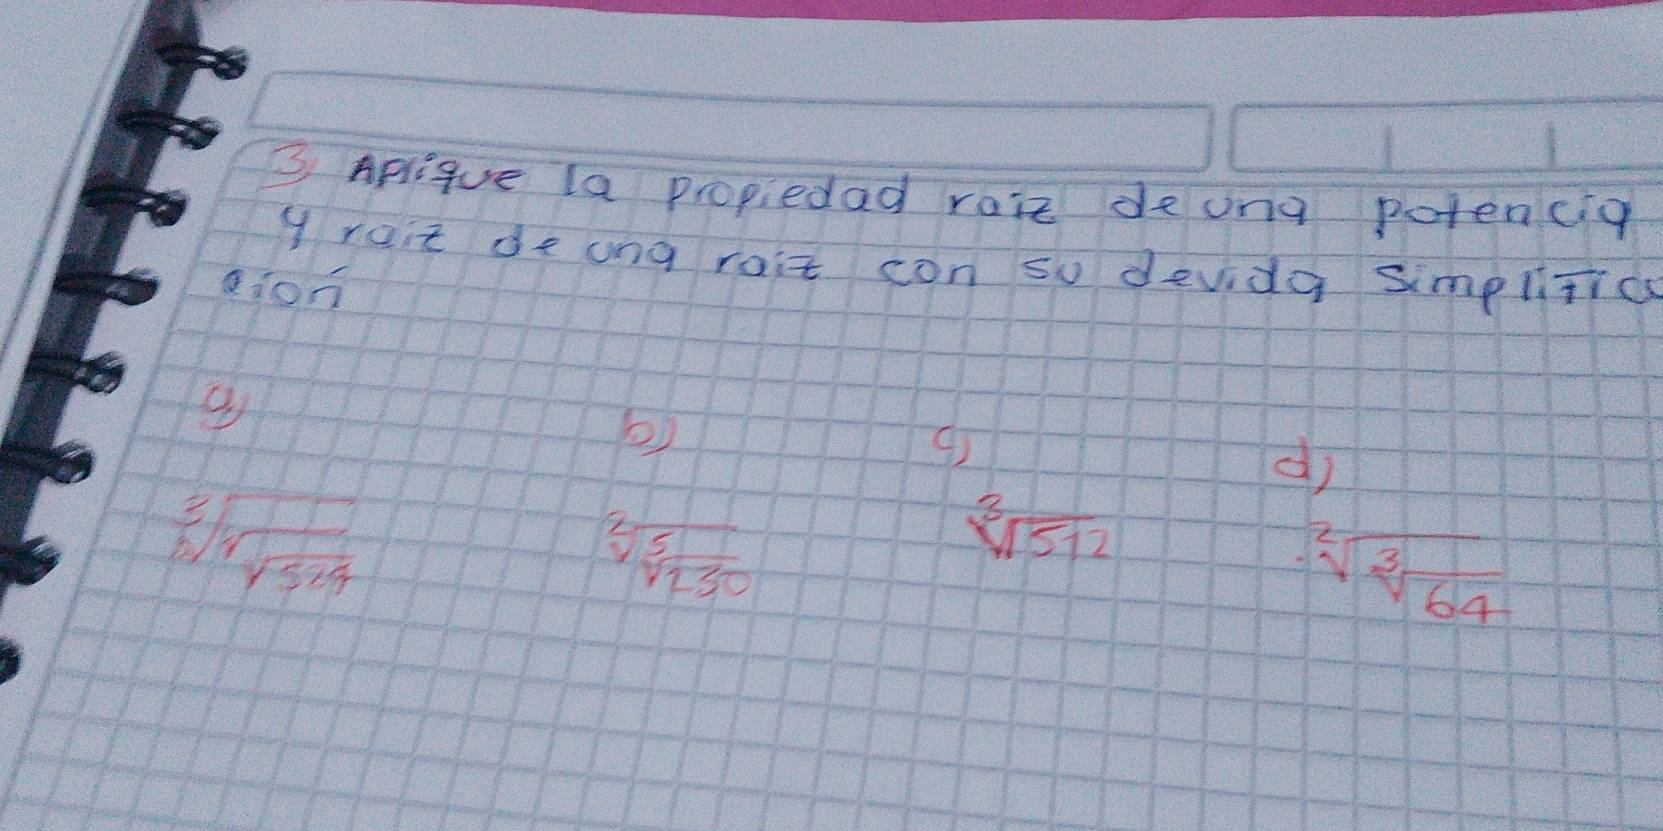 3) Aplique la propiedad raiz de una potencia
y raiz de una raiz con su devida simplifica
ción
a) b) c) d)
∛√√524 ²√⁵√230 ∛512 ²√∛64